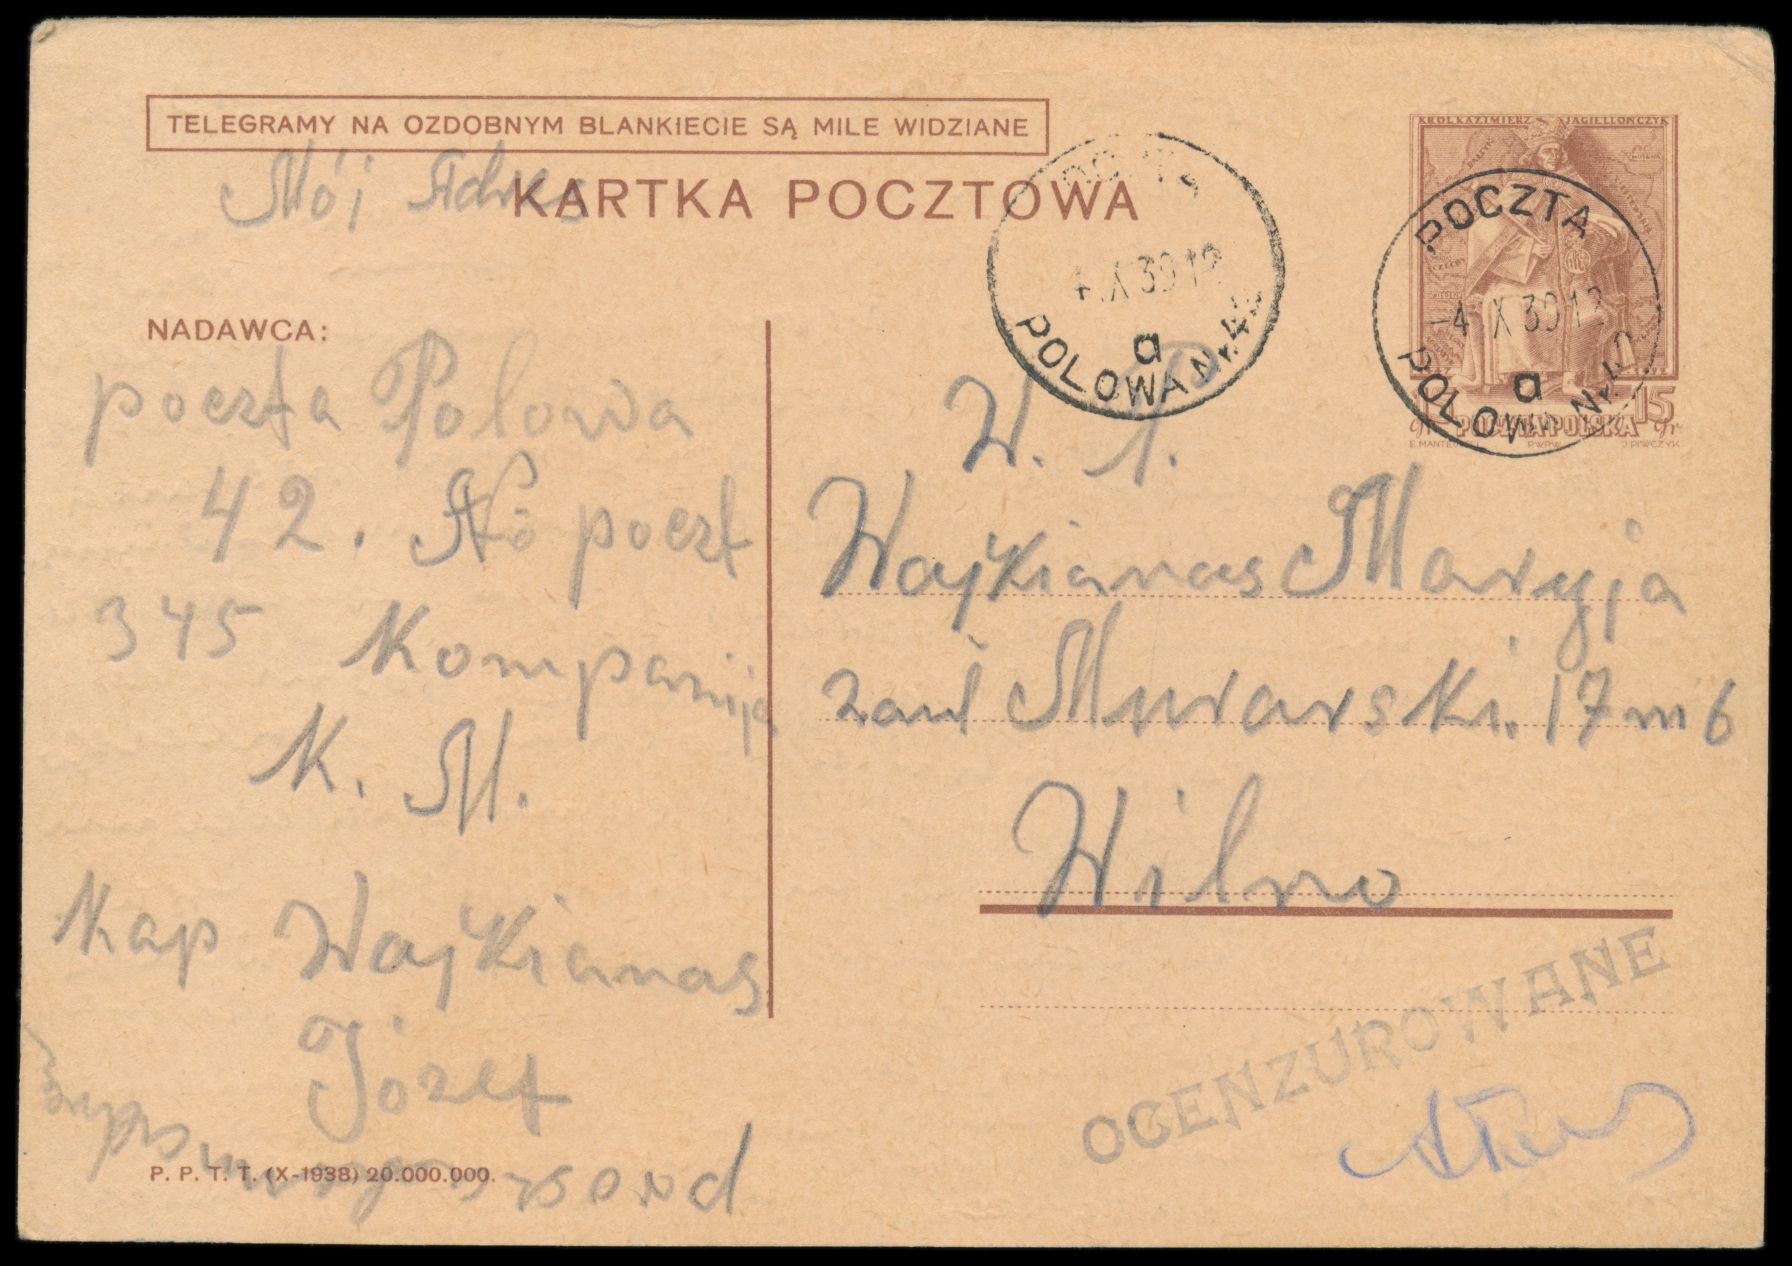 TELEGRAMY NA OZDOBNYM BLANKIECIE SĄ MILE WIDZIANE
Mój Adres
KARTKA POCZTOWA
NADAWCA:
poczta Polowa
42. No poczt
345 Kompanija
K. M.
Kap Wajkianas
Józef
P. P. T. T. (X-1938) 20.000.000.
KRÓL KAZIMIERZ JAGIELLOŃCZYK
15
POCZTA POLSKA
gr
4 X 39 12
a
POLOWA Nr. 4
POCZTA
-4 X 39 12
a
POLOWA Nr.
W. P.
Wajkianas Maryja
zauł Murarski. 17 m 6
Wilno
OCENZUROWANE